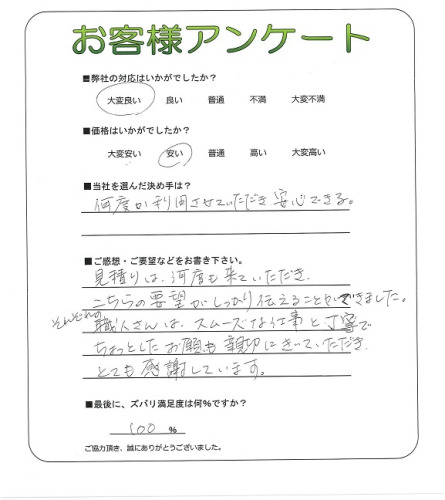 お客様アンケート
■弊社の対応はいかがでしたか？
大変良い 良い 普通 不満 大変不満
■価格はいかがでしたか？
大変安い 安い 普通 高い 大変高い
■当社を選んだ決め手は？
何度か利用させていただき安心できる。
■ご感想・ご要望などをお書き下さい。
見積りは、何度も来ていただき、
こちらの要望がしっかり伝えることができました。
それぞれの職人さんは、スムーズな仕事と丁寧で
ちょっとしたお願も親切にきいていただき、
とても感謝しています。
■最後に、ズバリ満足度は何%ですか？
100 %
ご協力頂き、誠にありがとうございました。